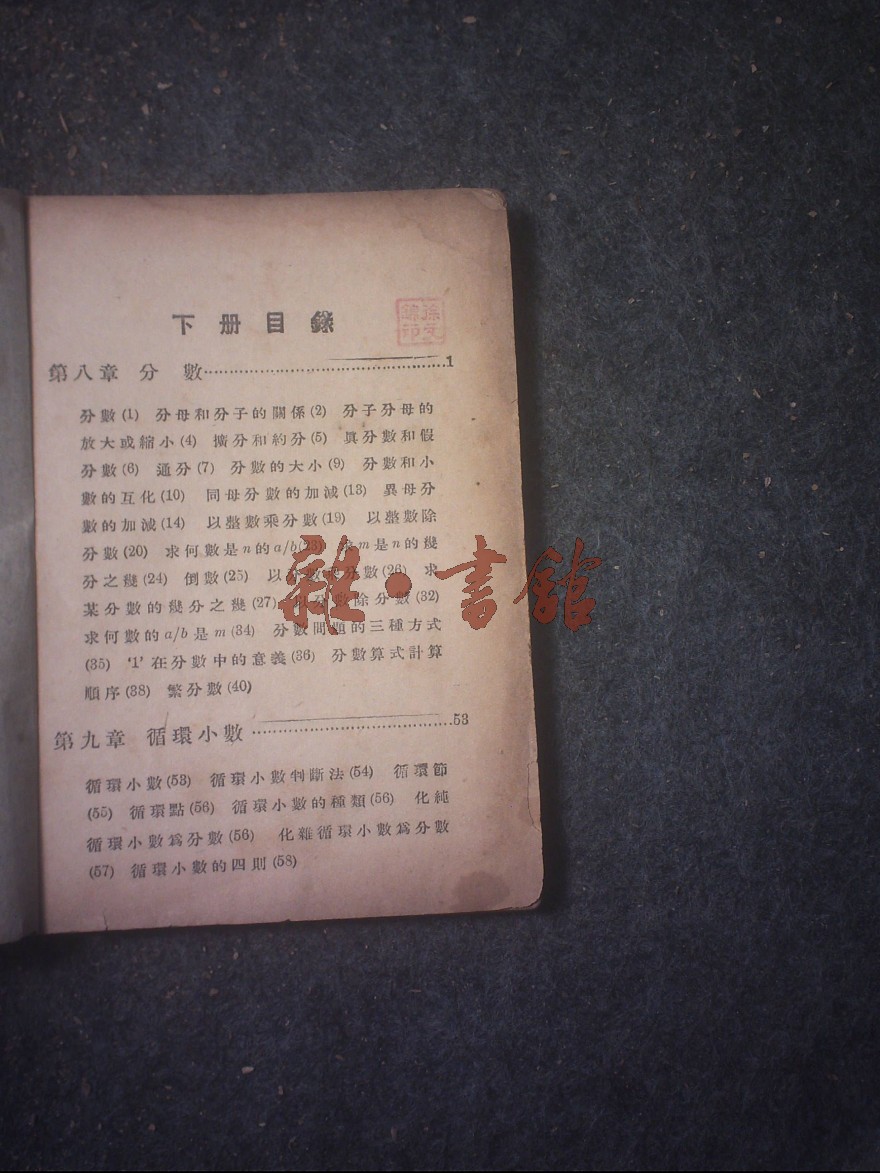 下册目錄
第八章 分 數……………………………………1
分數(1) 分母和分子的關係(2) 分子分母的
放大或縮小(4) 擴分和約分(5) 眞分數和假
分數(6) 通分(7) 分數的大小(9) 分數和小
數的互化(10) 同母分數的加減(13) 異母分
數的加減(14) 以整數乘分數(19) 以整數除
分數(20) 求何數是n的a/b(23) 求m是n的幾
分之幾(24) 倒數(25) 以分數乘分數(26) 求
某分數的幾分之幾(27) 以分數除分數(32)
求何數的a/b是m(34) 分數問題的三種方式
(35) '1'在分數中的意義(36) 分數算式計算
順序(38) 繁分數(40)
第九章 循環小數……………………………53
循環小數(53) 循環小數判斷法(54) 循環節
(55) 循環點(56) 循環小數的種類(56) 化純
循環小數爲分數(56) 化雜循環小數爲分數
(57) 循環小數的四則(58)
雜·書館